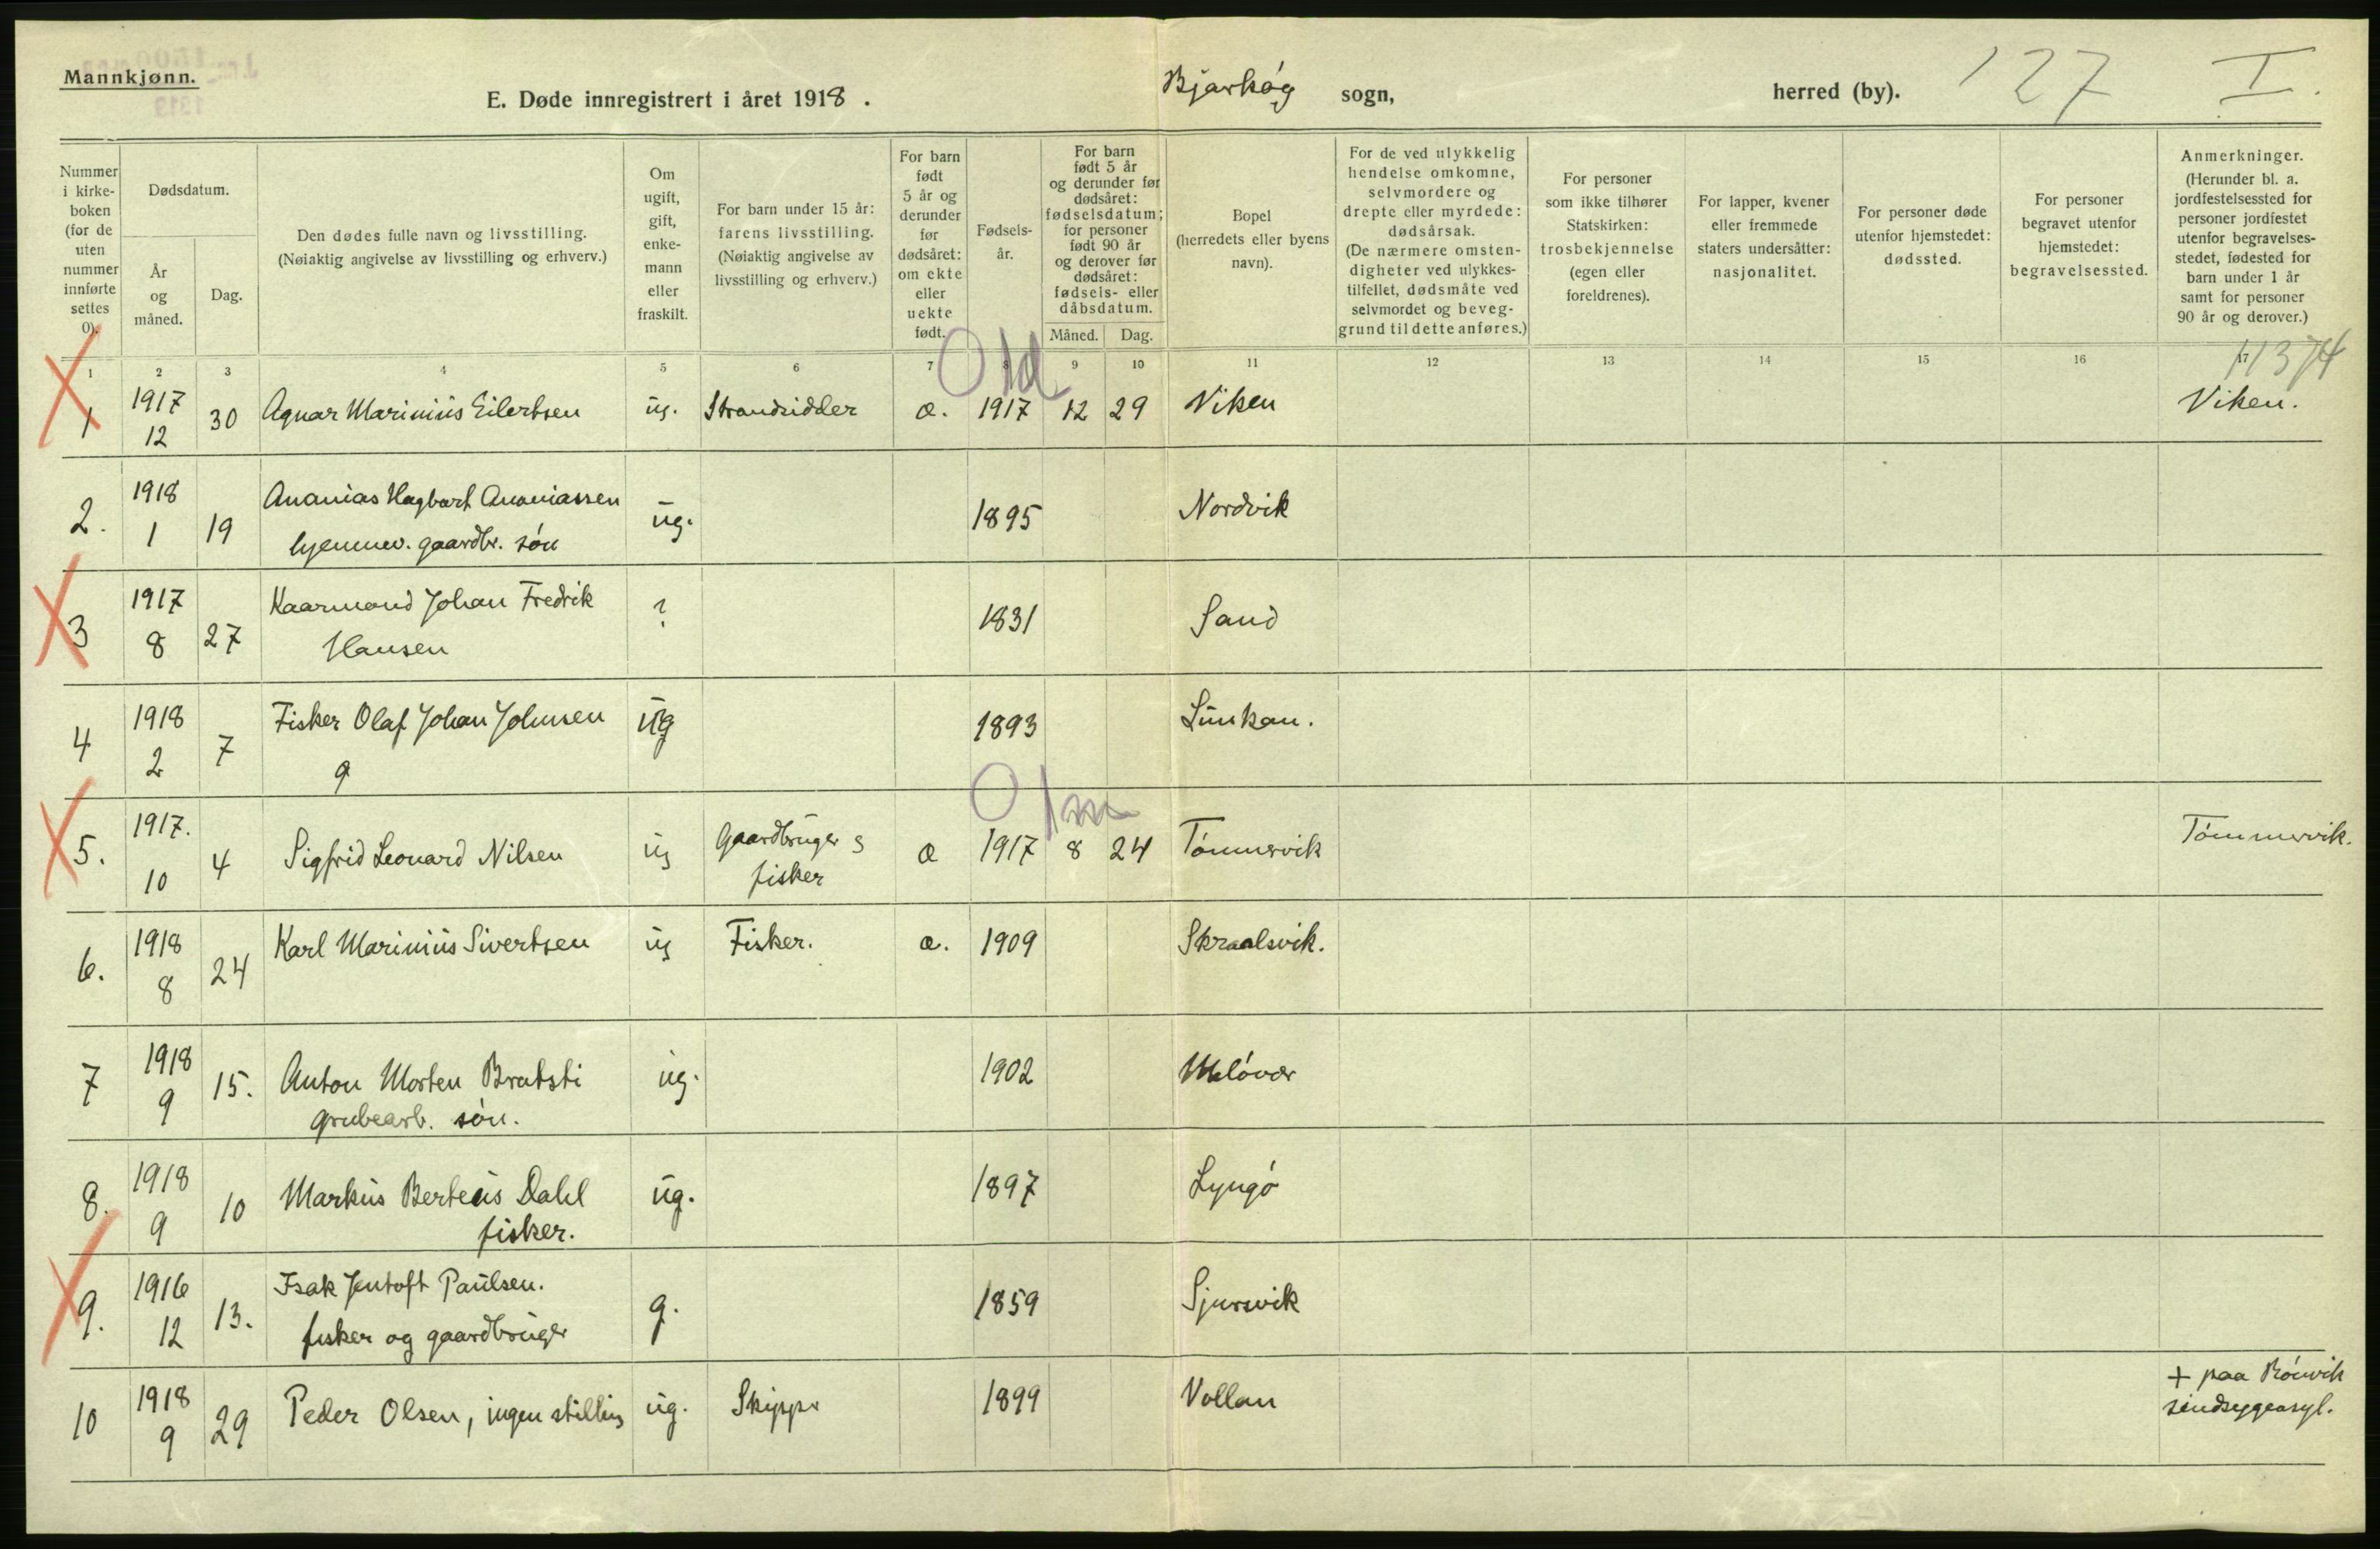 Mannkjønn.
E. Døde innregistrert i året 1918.
Bjarkøy sogn,
herred (by).
127
I.
Nummer i kirke-boken (for de uten nummer innførte settes 0).
Dødsdatum.
År og måned.
Dag.
Den dødes fulle navn og livsstilling.
(Nøiaktig angivelse av livsstilling og erhverv.)
Om ugift, gift, enke-mann eller fraskilt.
For barn under 15 år: farens livsstilling.
(Nøiaktig angivelse av livsstilling og erhverv.)
For barn født 5 år og derunder før dødsåret: om ekte eller uekte født.
Fødsels-år.
For barn født 5 år og derunder før dødsåret: fødselsdatum; for personer født 90 år og derover før dødsåret: fødsels- eller dåbsdatum.
Måned.
Dag.
Bopel (herredets eller byens navn).
For de ved ulykkelig hendelse omkomne, selvmordere og drepte eller myrdede: dødsårsak.
(De nærmere omsten-digheter ved ulykkes-tilfellet, dødsmåte ved selvmordet og beveg-grund til dette anføres.)
For personer som ikke tilhører Statskirken: trosbekjennelse (egen eller foreldrenes).
For lapper, kvener eller fremmede staters undersåtter: nasjonalitet.
For personer døde utenfor hjemstedet: dødssted.
For personer begravet utenfor hjemstedet: begravelsessted.
Anmerkninger.
(Herunder bl. a. jordfestelsessted for personer jordfestet utenfor begravelses-stedet, fødested for barn under 1 år samt for personer 90 år og derover.)
1 2 3 4 5 6 7 8 9 10 11 12 13 14 15 16 17
0 1d
11374
1 1917 12 30 Agnar Marinius Eilertsen ug. Strandsidder æ. 1917 12 29 Viken Viken.
2. 1918 1 19 Ananias Hagbart Ananiassen ug. 1895 Nordvik
hjemmev. gaardbr. søn
3 1917 8 27 Kaarmand Johan Fredrik ? 1831 Sand
Hansen
4 1918 2 7 Fisker Olaf Johan Johnsen ug 1893
0 1m
5. 1917. 10 4 Sigfrid Leonard Nilsen ug Gaardbruger & æ 1917 8 24 Tømmervik Tømmervik.
fisker
6. 1918 8 24 Karl Marinius Sivertsen ug Fisker. æ. 1909 Skraalsvik.
7 1918 9 15. Anton Morten Bratsti ug. 1902 Meløvær
grubearb. søn.
8. 1918 9 10 Markus Berteus Dahl ug. 1897 Lyngø
fisker.
9. 1916 12 13. Isak Jentoft Paulsen. g. 1859 Sjursvik
fisker og gaardbruger
10 1918 9 29 Peder Olsen, ingen stilling ug. Skipper 1899 Vollan + paa Rönvik
sindsygeasyl.